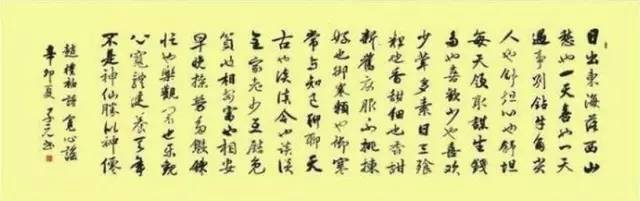 日出東海落西山
愁也一天喜也一天
遇事别钻牛角尖
人也舒坦心也舒坦
每天領取謀生錢
多也喜歡少也喜歡
少荤多素日三餐
粗也香甜細也香甜
新舊衣服不挑揀
好也御寒賴也御寒
常与知己聊聊天
古也谈谈今也谈谈
全家老少互慰勉
貧也相安富也相安
早晚操勞勤鍛煉
忙也樂觀閑也樂觀
心寬體健養天年
不是神仙勝似神仙
趙樸初詩寬心謠
辛卯夏子元书